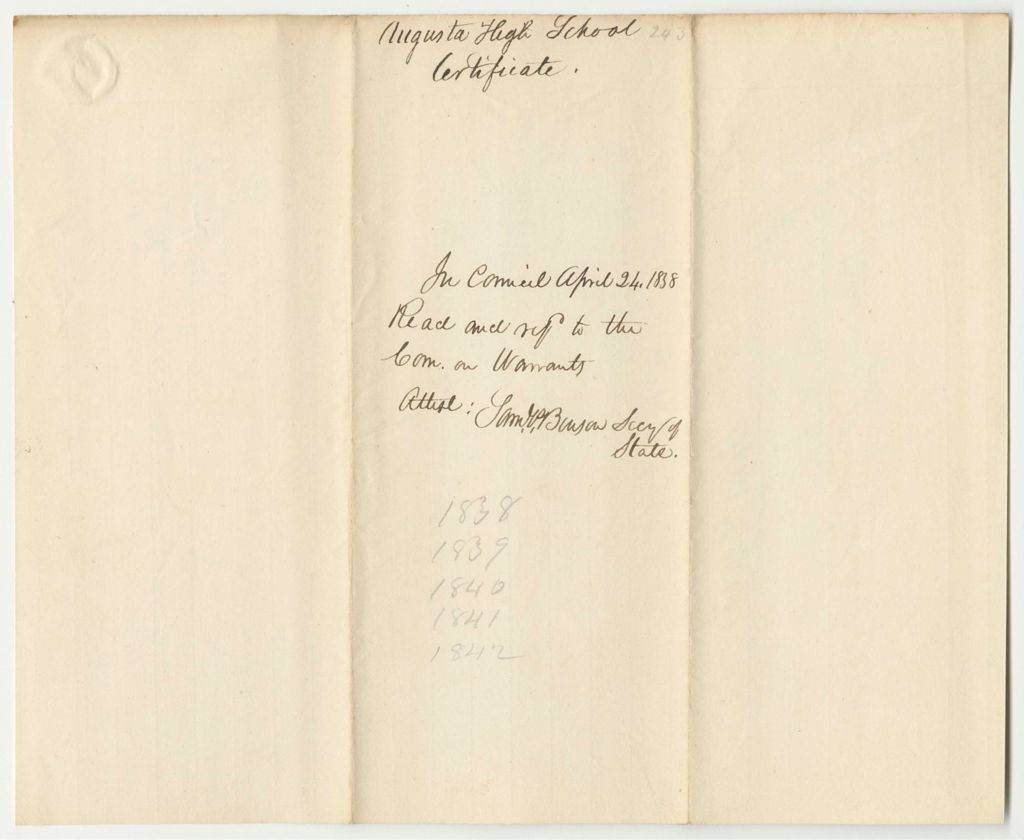 Augusta High School 243
Certificate.
In Council April 24. 1838
Read and refd to the
Com. on Warrants
Attest: Saml. P. Benson Secy of
State.
1838
1839
1840
1841
1842